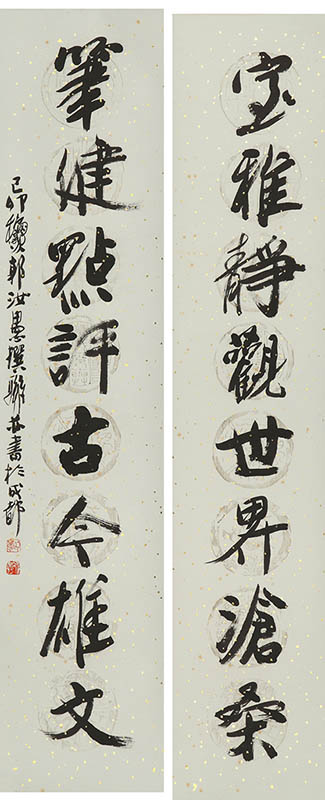 室雅靜觀世界滄桑
筆健點評古今雄文
己卯穐郭汝愚撰聯并書於成都